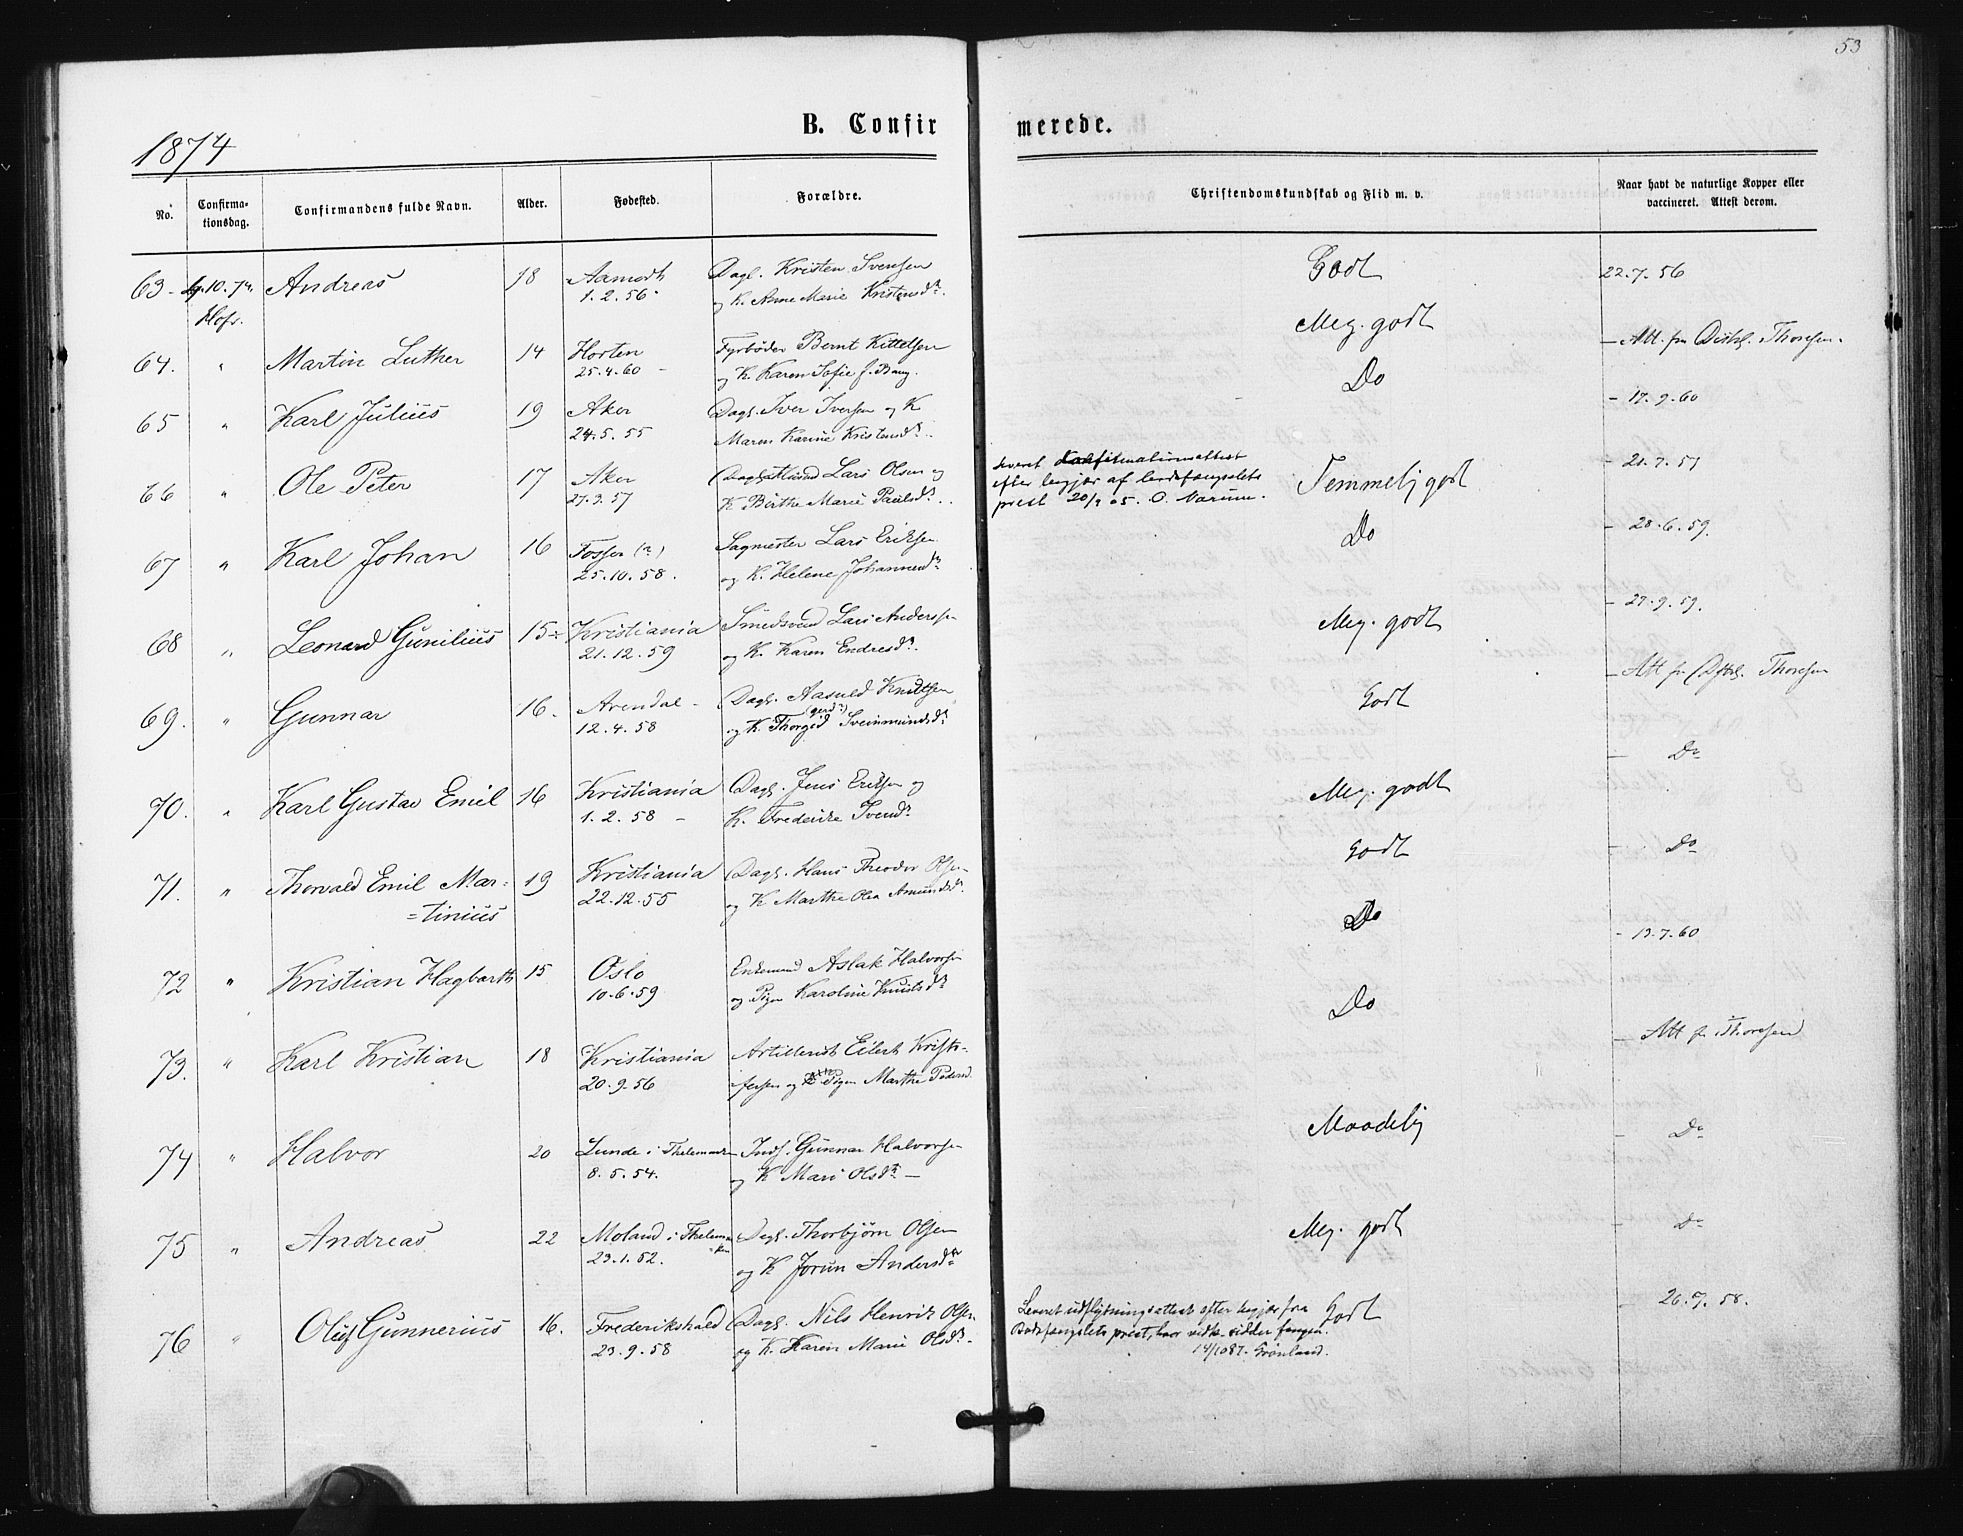 53
1874
B. Confirmerede.
No.
Confirmationsdag.
Confirmandens fulde Navn.
Alder.
Fødested.
Forældre.
Christendomskundskab og Flid m. v.
Naar havt de naturlige Kopper eller vaccineret. Attest derom.
63 - 10. 74. Andreas 18 Aamodt Dagl. Kristen Svensen Godt 22.7.56
1.2.56 og K. Anne Marie Kristensdr.
64. " Martin Luther 14 Horten Fyrbøder Bernt Kittelsen Meg. godt - Att. fra Distrl. Thoresen.
25.4.60 - og K. Karen Sofie f. Bang.
65 " Karl Julius 19 Aker Dagl. Iver Iversen og K Do - 17.9.60
24.5.55 Maren Karine Kristensdr.
66 " Ole Peter 17 Aker Lars Olsen og Temmelig godt - 21.7.57
27.9.57 K Birthe Marie Paulsdr.
leveret Konfirmationsattest
efter begjær af landsfængselets
prest 20/9 05. O. Narum.
67 " Karl Johan 16 Fosser (?) Sagmester Lars Eriksen Do - 28.6.59.
25.10.58. og K. Helene Johannesdr.
68 " Leonard Gunilius 15 Kristiania Smedsvend Lars Anderssen Meg. godt - 27.9.59.
21.12.59 og K. Karen Endresdr.
69. " Gunnar 16. Arendal - Dagl. Aasuld Knudtsen Godt - Att fr Distrl. Thoresen
12.4.58 og K. Thorgid (gerd?) Sveinmundsdr
70. " Karl Gustav Emil 16 Kristiania Dagl. Jens Eriksen og Meg. godt - Do
1.2.58 - K. Frederike Svendr
71. " Thorvald Emil Mar= 19 Kristiania Dagl. Hans Theodor Olsen Godt - Do
=tinius 22.12.55 og K Marthe Olea Amundsdr.
72 " Kristian Hagbarth 15 Oslo Enkemand Aslak Halvorsen Do - 13.7.60
10.6.59 og Pigen Karoline Knutsdr
73. " Karl Kristian 18 Kristiania Artillerist Eilert Kristo- Do - Att fr Thoresen
20.9.56 fersen og Pigen Marthe Pedersd.
74 " Halvor 20 Lunde i Thelemarken Inds. Gunnar Halvorsen Maadelig - Do
8.5.54. og K Mari Olsdr -
75 " Andreas 22 Moland i Thelemar Dagl. Thorbjørn Olsen Meg. godt - Do
=ken
23.1.52. og K Jorun Andersdr
76 " Oluf Gunnerius 16. Frederikshald Dagl. Nils Henrik Olsen Godt - 26.7.58.
23.9.58 og K. Karen Marie Olsdr.
Leveret udflytningsattest efter begjær fra
Bodsfængslets prest, hvor vedk. sidder fangen.
14/10 87. Grønland.